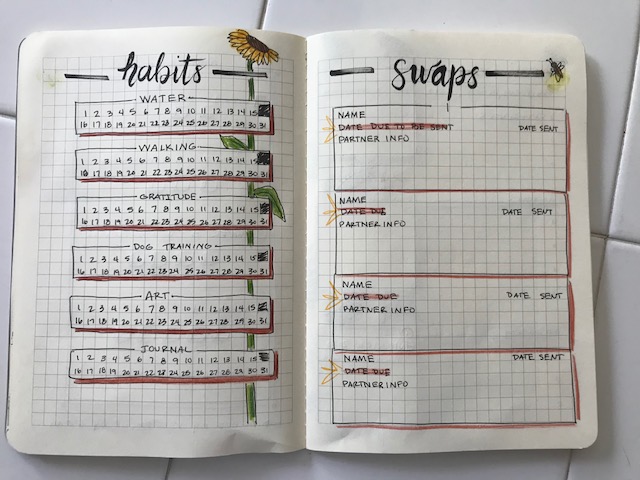 habits
WATER
1 2 3 4 5 6 7 8 9 10 11 12 13 14 15
16 17 18 19 20 21 22 23 24 25 26 27 28 29 30 31
WALKING
1 2 3 4 5 6 7 8 9 10 11 12 13 14 15
16 17 18 19 20 21 22 23 24 25 26 27 28 29 30 31
GRATITUDE
1 2 3 4 5 6 7 8 9 10 11 12 13 14 15
16 17 18 19 20 21 22 23 24 25 26 27 28 29 30 31
DOG TRAINING
1 2 3 4 5 6 7 8 9 10 11 12 13 14 15
16 17 18 19 20 21 22 23 24 25 26 27 28 29 30 31
ART
1 2 3 4 5 6 7 8 9 10 11 12 13 14 15
16 17 18 19 20 21 22 23 24 25 26 27 28 29 30 31
JOURNAL
1 2 3 4 5 6 7 8 9 10 11 12 13 14 15
16 17 18 19 20 21 22 23 24 25 26 27 28 29 30 31
Swaps
NAME
DATE DUE TO BE SENT DATE SENT
PARTNER INFO
NAME
DATE DUE DATE SENT
PARTNER INFO
NAME
DATE DUE DATE SENT
PARTNER INFO
NAME DATE SENT
DATE DUE
PARTNER INFO